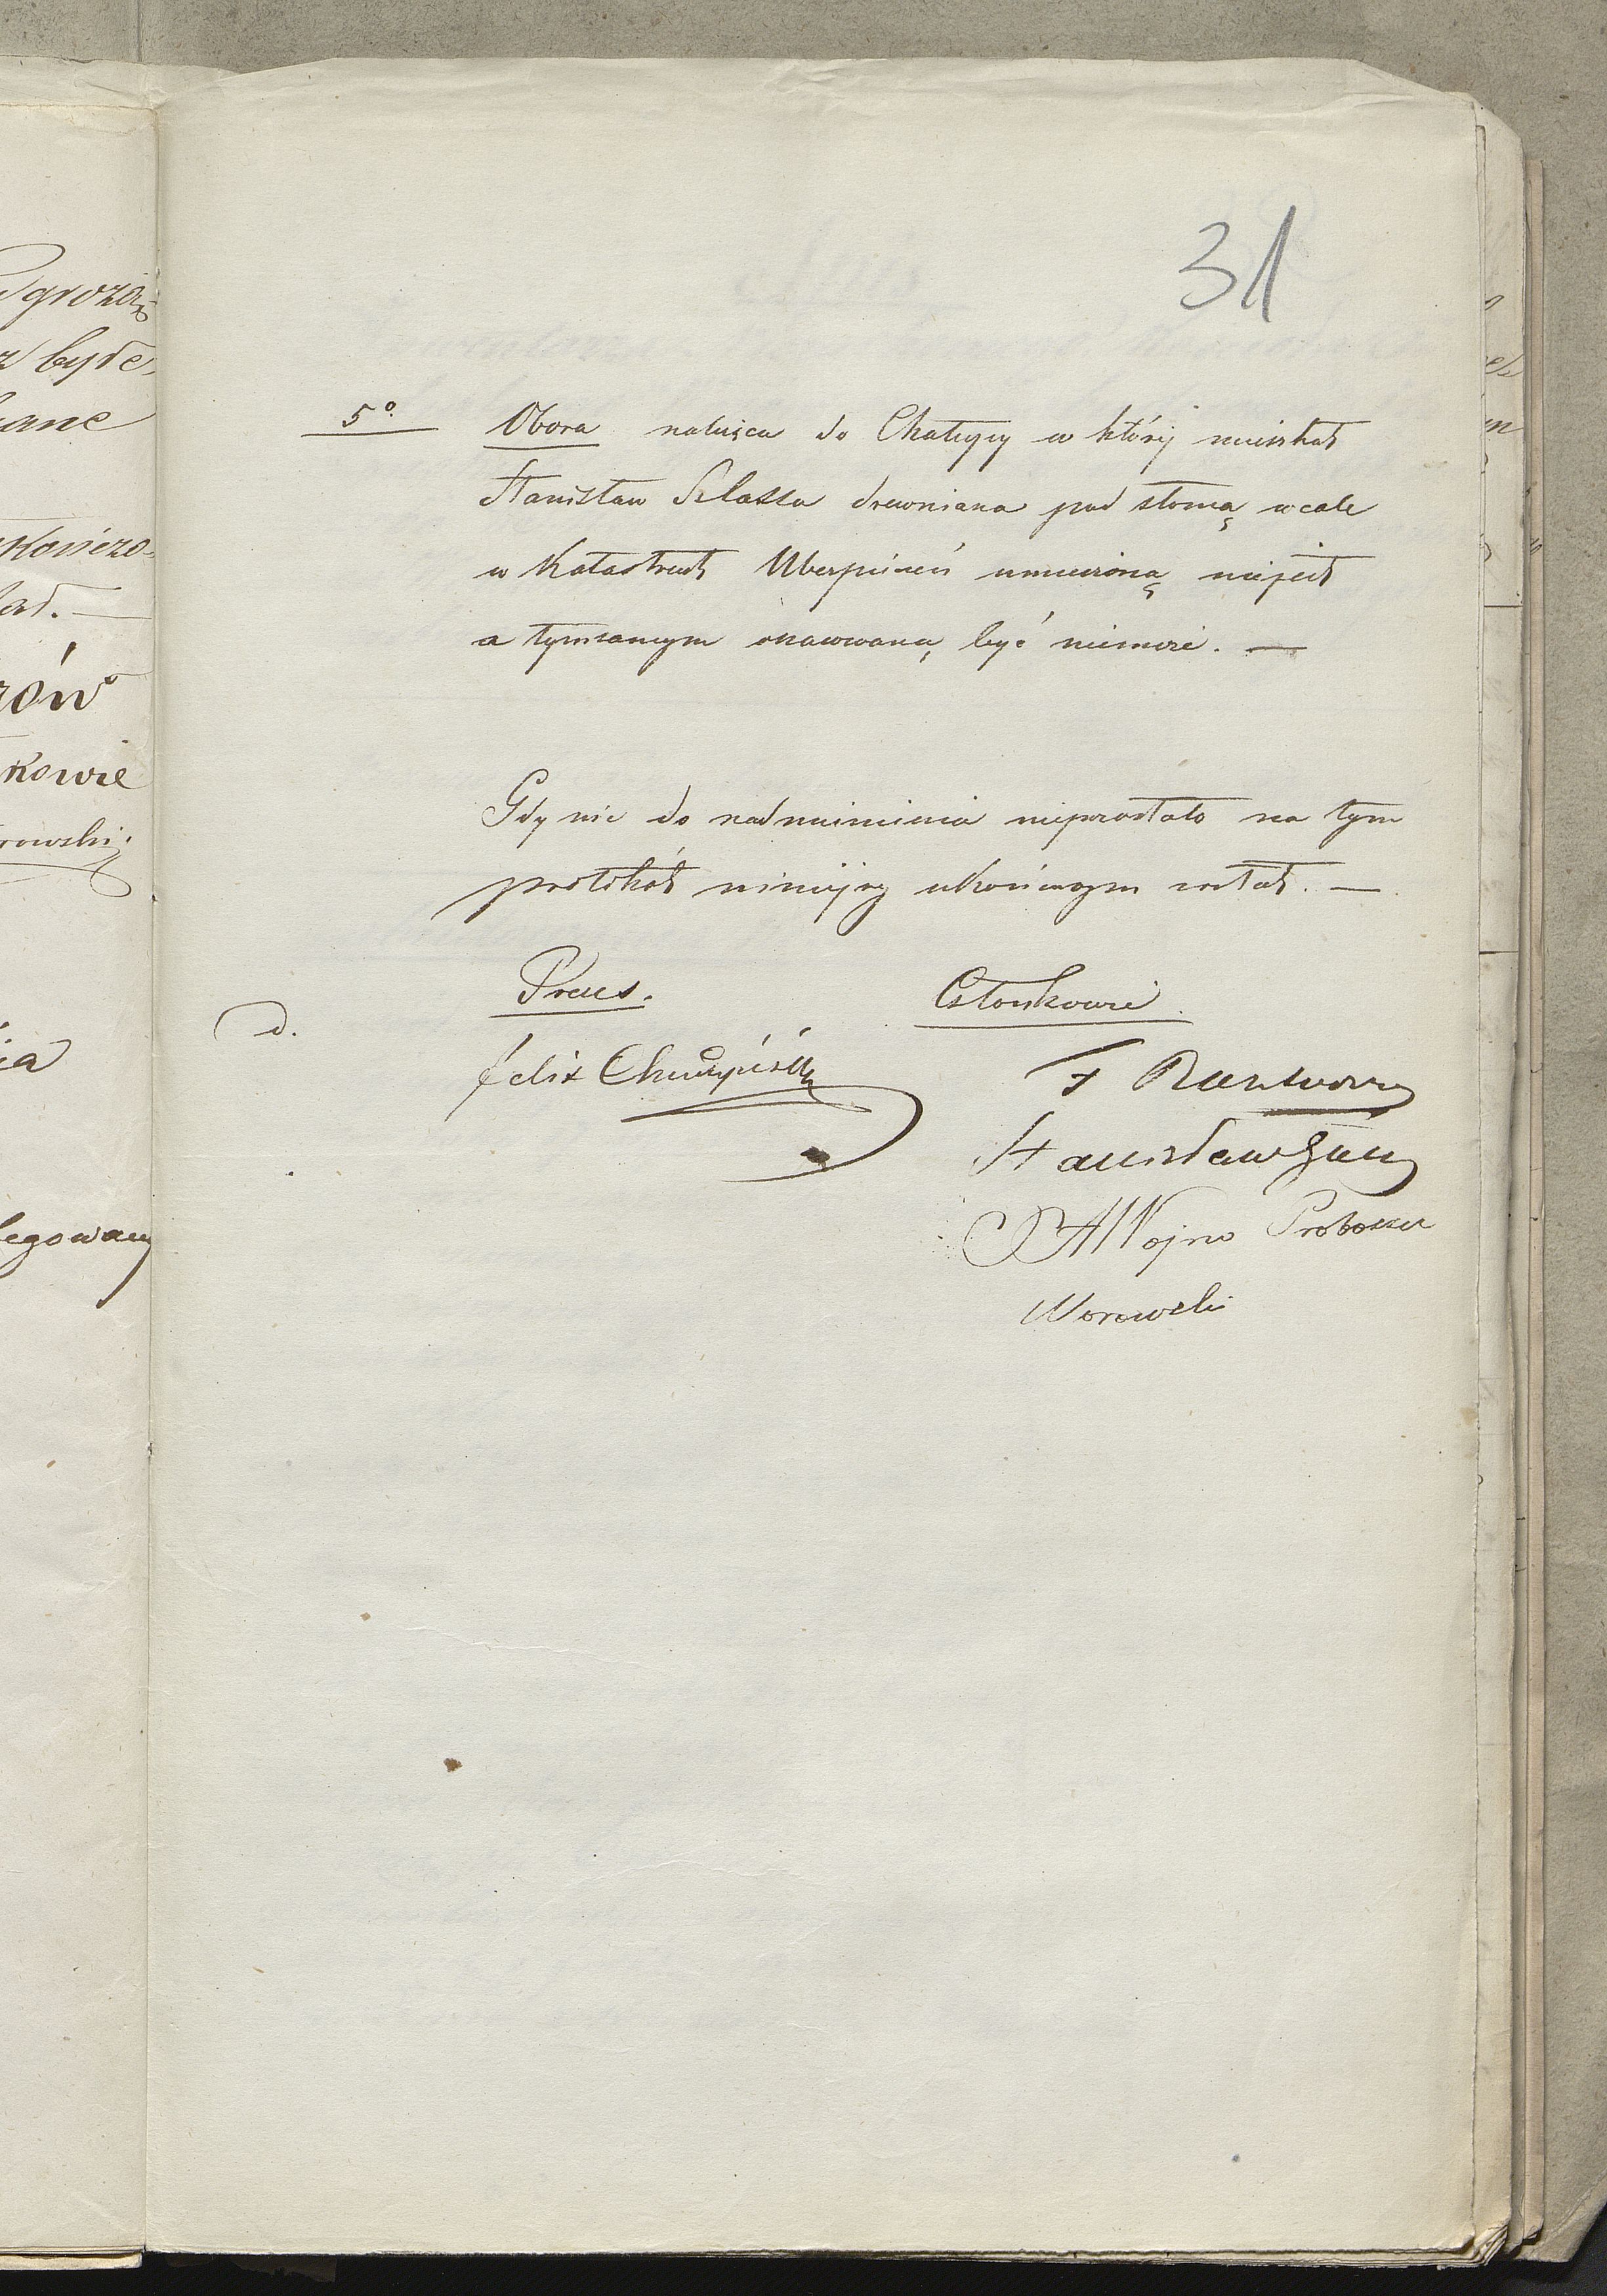 31
5º Obora należąca do Chałupy w której mieszkał
Stanisław Szlassa drewniana pod słomą wcale
w Katastrach Ubezpieczeń umieszczoną niejest
a tymsamym szacowaną być niemoże. —
Gdy nic do nadmienienia niepozostało na tym
protokół niniejszy ukończonym został. —
Prezes. Członkowie.
d.
Felix
F
Stanisław
X A Wojno Proboszcz
Worowski
grożą
z byde
ane
kończo-
ład. —
rów
kowie
rowski
ia
legowany